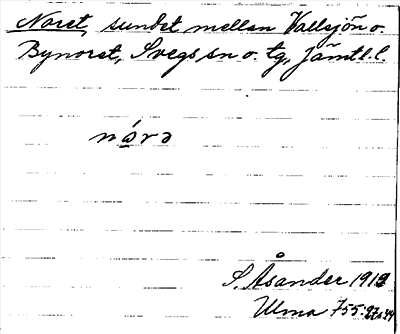 Noret, sundet mellan Vallsjön o.
Bynoret, Svegs sn o. tg, Jämtl. l.
nórə
S. Åsander 1912
Ulma 755: